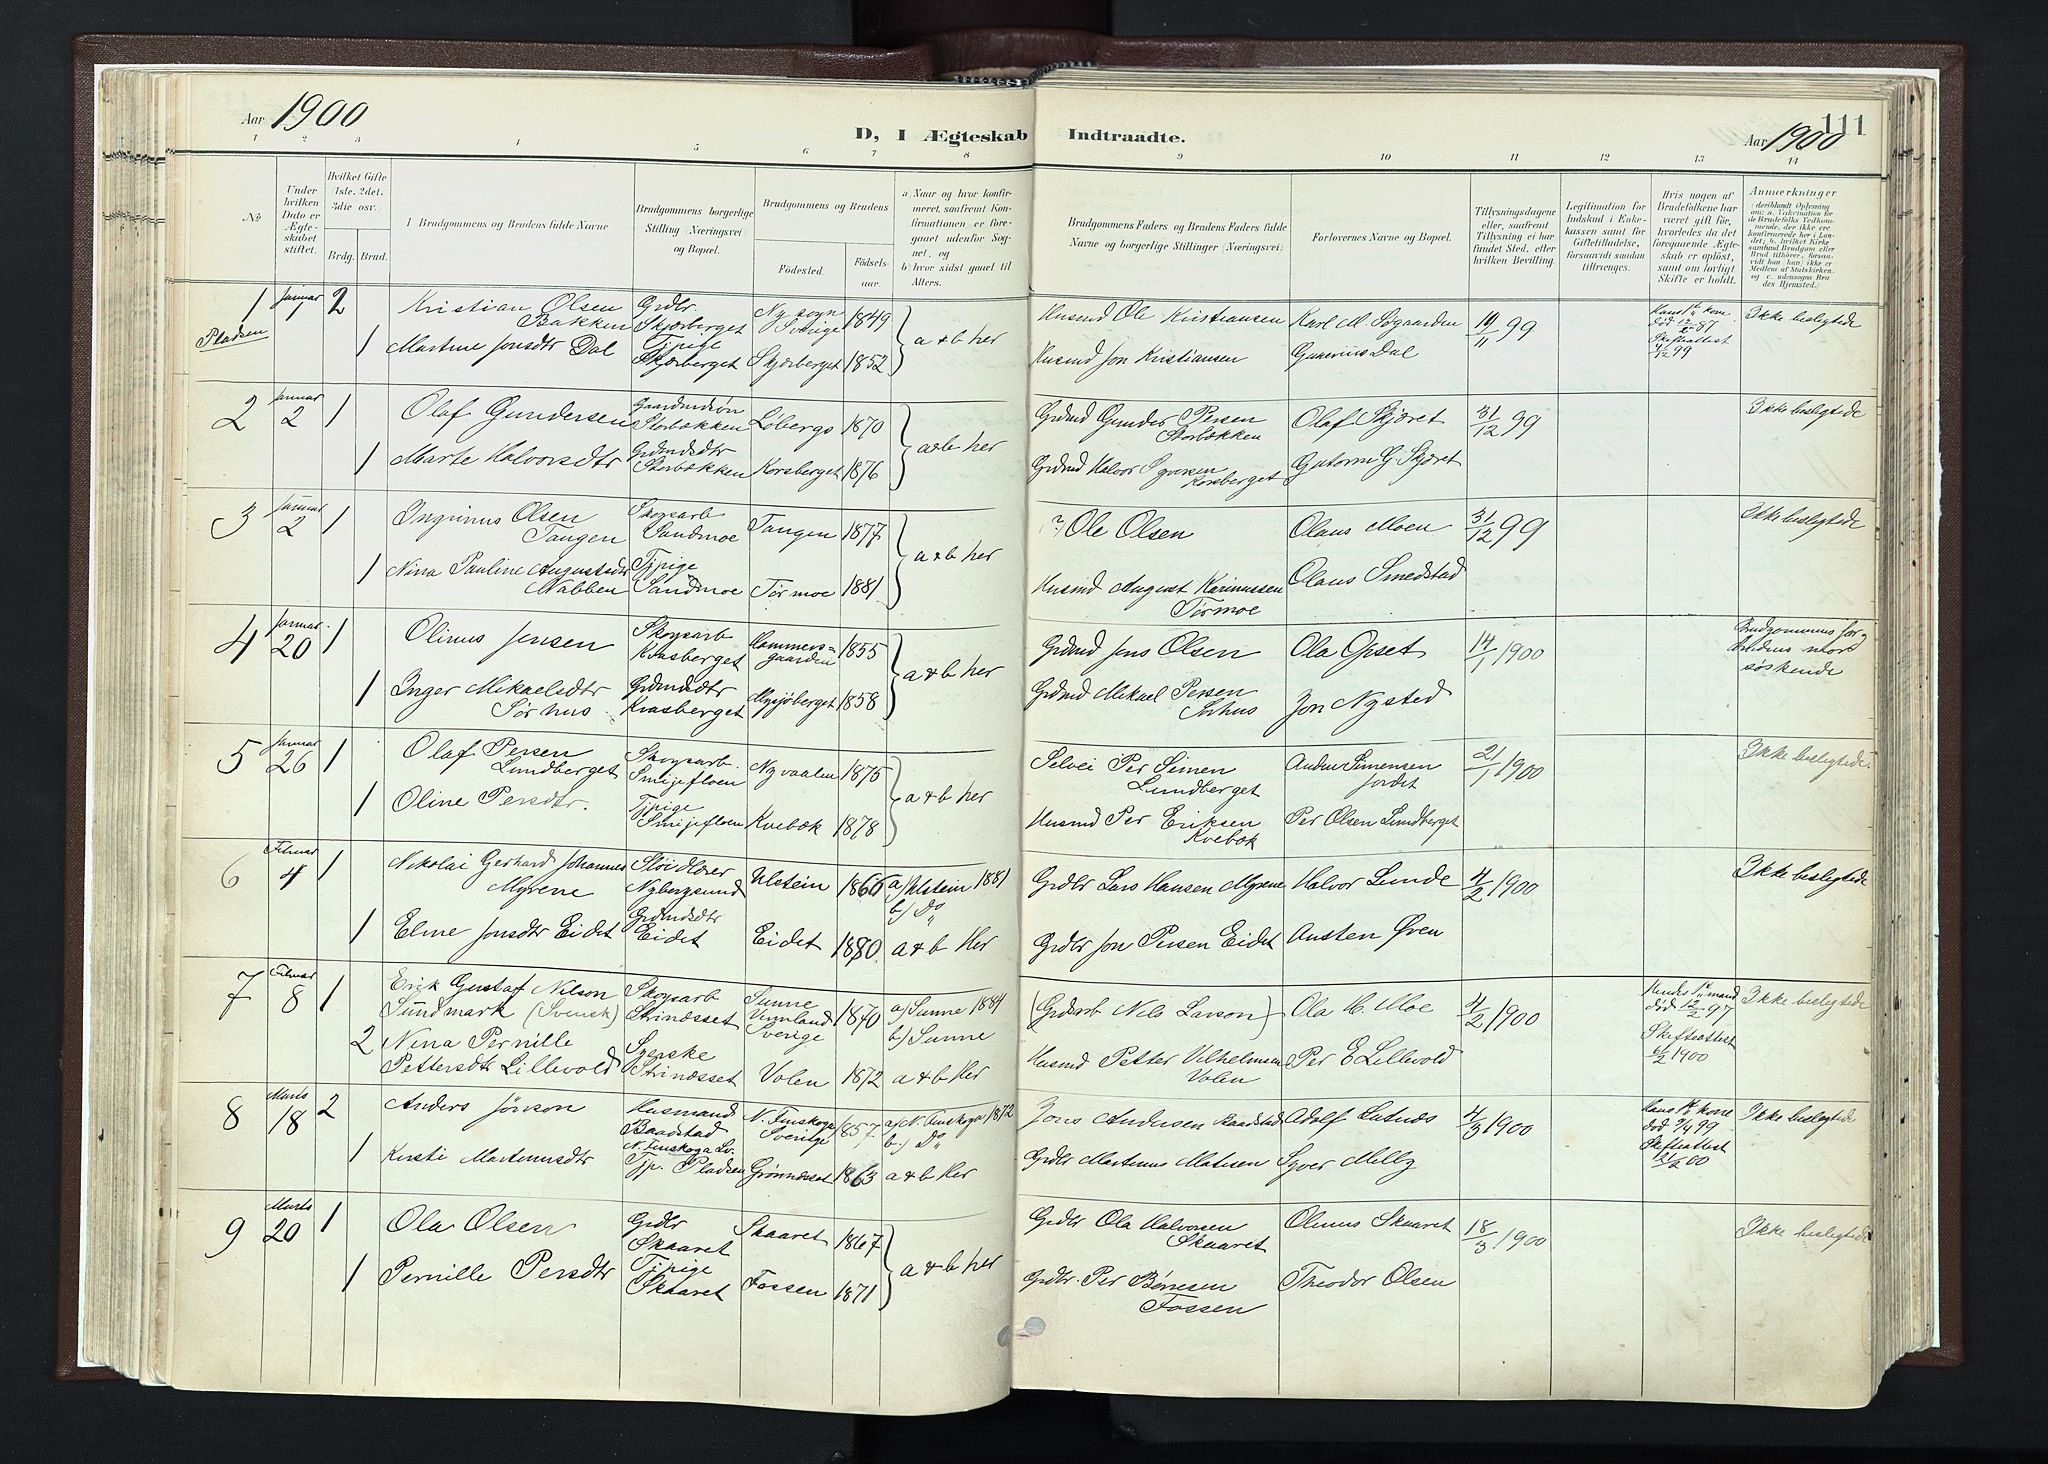 Aar 1900
D, I Ægteskab Indtraadte.
Aar 1900
111
1 2 3 4 5 6 7 8 9 10 11 12 13 14
No
Under hvilken Dato er Ægteskabet stiftet.
Hvilket Gifte (1ste, 2det, 3die osv.)
Brdg. Brud.
Brudgommens og Brudens fulde Navne
Brudgommens borgerlige Stilling (Næringsvei) og Bopæl.
Brudgommens og Brudens
Fødested.
Fødselsaar.
a) Naar og hvor konfirmeret, saafremt Konfirmationen er foregaaet udenfor Sognet, og
b) hvor sidst gaaet til Alters.
Brudgommens Faders og Brudens Faders fulde Navne og borgerlige Stillinger (Næringsvei)
Forlovernes Navne og Bopæl.
Tillysningsdagene eller, saafremt Tillysning ei har fundet Sted, efter hvilken Bevilling.
Legitimation for Indskud i Enkekassen samt for Giftetilladelse, forsaavidt saadan tiltrænges.
Hvis nogen af Brudefolkene har været gift før, hvorledes da det foregaaende Ægteskab er opløst, samt om lovligt Skifte er holdt.
Anmærkninger
1 Januar 1 2 Kristian Olsen Bakken Grdbr. Skjærberget Ny sogn Sverige 1849 a & b her Husmd Ole Kristiansen Karl M Søgaarden 19/11 99 Ikke beslegtede
Pladsen
1 Martine Jonsdtr Dal Tjpige Skjærberget Skjærberget 1852 Husmd Jon Kristiansen Gunerius Dal
2 Januar 2 1 Olaf Gundersen Gaardmdsøn Storbækken Løbergs 1870 a & b her Grdmd Gunder Persen Storbækken Olaf Skjæret 31/12 99 Ikke beslegtede
1 Marte Halvorsdtr Grdmdsdtr Storbækken Korsberget 1876 Grdmd Halvor Syversen Korsberget Gutorm G. Skjæret
3 Januar 2 1 Ingrinus Olsen Tangen Skogsarb Sandmoe Tangen 1877 a & b her ? Ole Olsen Olaus Moen 31/12 99 Ikke beslegtede
1 Nina Pauline Augustsdtr Nabben Tjpige Sandmoe Tørmoe 1881 Husmd August Karinussen Tørmoe Olaus Smedstad
4 Januar 20 1 Olinus Jensen Skogsarb Knasberget Hammersgaarden 1855 a & b her Grdmd Jens Olsen Ola Opset 14/1 1900 Brudgommens far & Brudens mor søskende
1 Inger Mikaelsdtr Sørhus Grdmdsdtr Knasberget Mysjøberget 1858 Grdmd Mikael Persen Sørhus Jon Nysted
5 Januar 26 1 Olaf Persen Lundberget Skogsarb. Smijefloen Nyvaalen 1875 a & b her Selvei Per Simen Lundberget Anders Simensen Jordet 21/1 1900 Ikke beslegtede
1 Oline Persdtr. Tjpige Smijefloen Kvebæk 1878 Husmd Per Eriksen Kvebæk Per Olsen Lundberget
6 Februar 4 1 Nikolai Gerhard Johannes Myrene Sløidlærer Nybergsund Utstein 1866 a) Utstein 1881 b) Do Grdbr Lars Hansen Myrene Halvor Lunde 4/2 1900 Ikke beslegtede
1 Eline Jonsdtr Eidet Grdmdsdtr Eidet Eidet 1880 a & b Her Grdbr Jon Persen Eidet Austen Øren
7 Februar 8 1 Erik Gustaf Nilson Sundmark (Svensk) Skogsarb Strinæsset Sunne Vermland Sverige 1870 a) Sunne 1884 b) Sunne (Grdarb Nils Larson) Ola H. Moe 4/2 1900 Hendes 1ste mand død 12/2 97 Skifteattest 1900 Ikke beslegtede
2 Nina Pernille Pettersdtr Lillevold Syerske Strinæsset Volen 1872 a & b Her Husmd Petter Vilhelmsen Volen Per E Lillevold
8 Marts 18 2 Anders Jonson Husmand Baadstad N. Finskoga Sv. N. Finskoga Sverige 1857 a) N. Finskoga 1872 b) Do Jons Andersen Baadstad Adolf Lutnæs 4/3 1900 Hans 1ste kone død 7/4 99 Skifteattest 21/2 00 Ikke beslegtede
1 Kersti Martinusdtr Tjp. Pladsen Grønnæsset 1863 a & b Her Grdbr Martinus Matisen Syver Melby
9 Marts 20 1 Ola Olsen Grdbr Skaaret Skaaret 1867 a & b her Grdbr Ola Halvorsen Skaaret Olinus Skaaret 18/3 1900 Ikke beslegtede
1 Pernille Persdtr Tjpige Skaaret Fossen 1871 Grdbr. Per Børresen Fossen Theodor Olsen